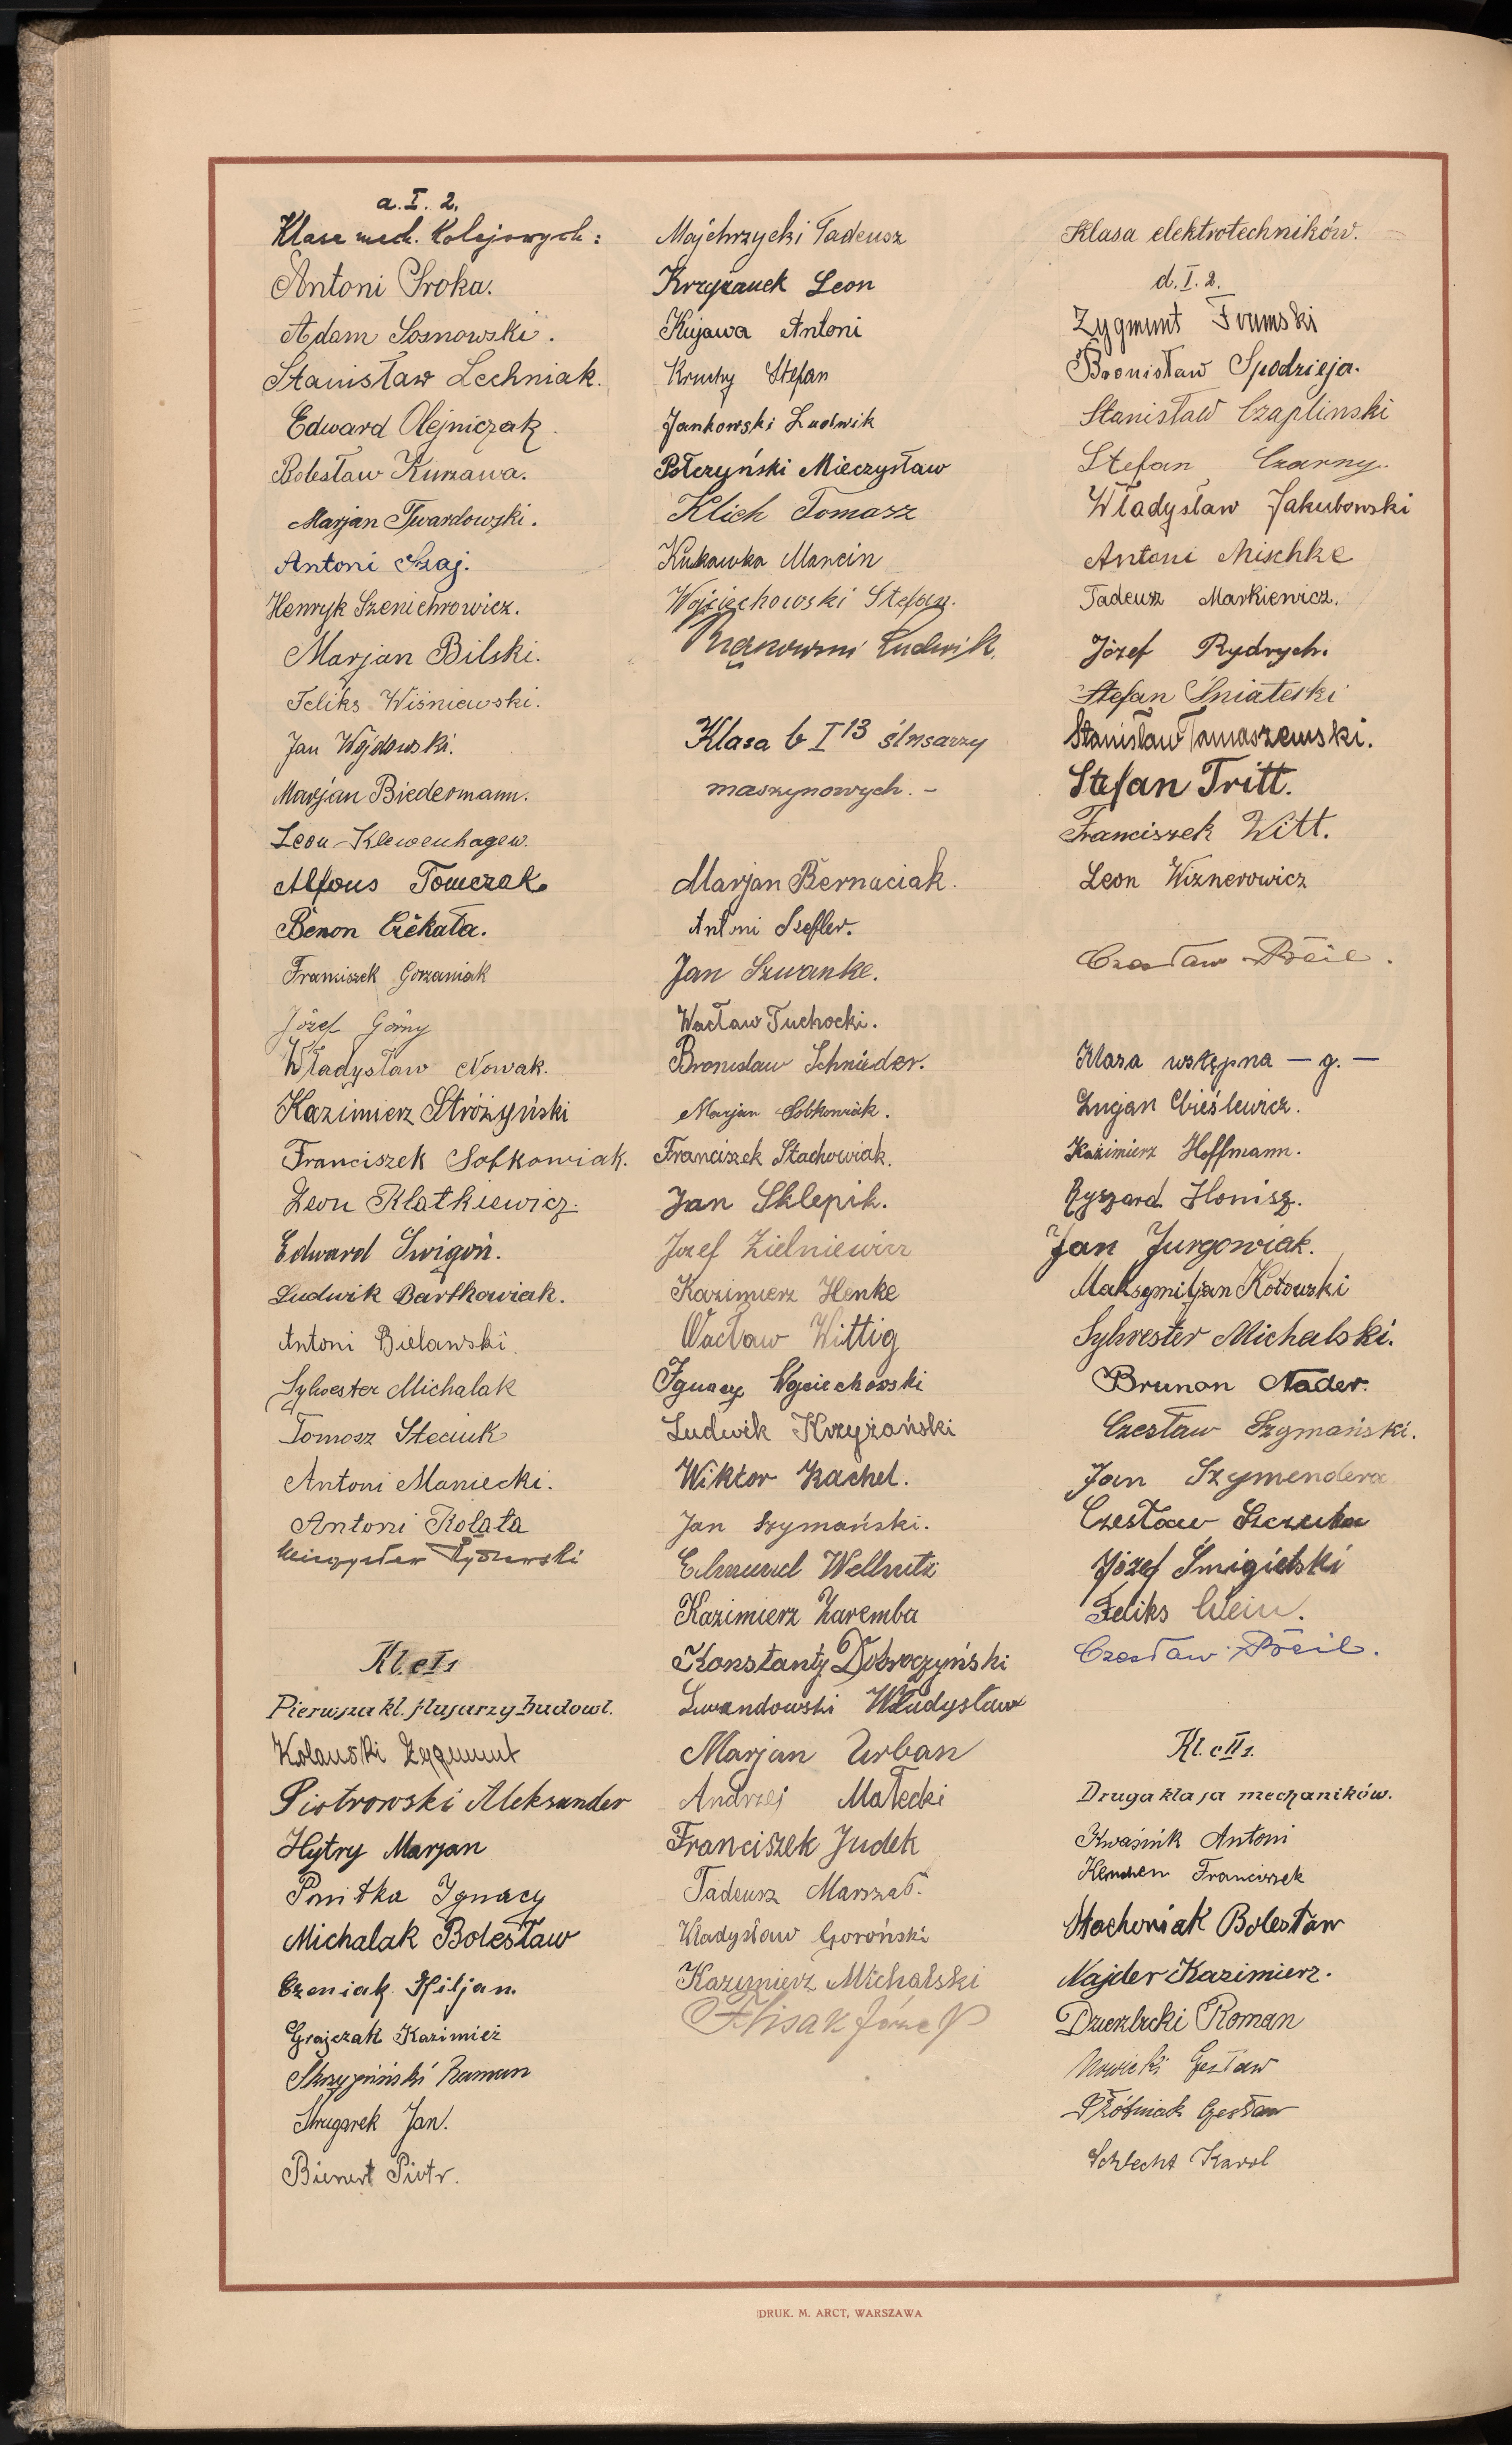 a. I. 2.
Klasa mech. Kolejowych:
Antoni Sroka.
Adam Sosnowski.
Stanisław Lechniak.
Edward Olejniczak.
Bolesław Kurzawa.
Marjan Twardowski.
Antoni Szaj.
Henryk Szenichrowicz.
Marjan Bilski.
Feliks Wiśniewski.
Jan Wojdowski.
Marjan Biedermann.
Leon Klewenhagen.
Alfons Tomczak.
Benon Cićkata.
Franciszek Gorzaniak
Józef Górny
Władysław Nowak.
Kazimierz Stróżyński
Franciszek Sobkowiak.
Leon Klatkiewicz.
Edward Świgoń.
Ludwik Bartkowiak.
Antoni Bielawski.
Sylwester Michalak
Tomasz Steciuk
Antoni Maniecki.
Antoni Kolata
Kl. c I1
Pierwsza kl. ślusarzy budowl.
Kolauski Zygmunt
Piotrowski Aleksander
Hytry Marjan
Pnitka Ignacy
Michalak Bolesław
Czeniak Kiljan.
Grajczak Kazimież
Skrzypiński Raman
Strugarek Jan.
Bienert Piotr.
Majchrzycki Tadeusz
Krzyżanek Leon
Kujawa Antoni
Kruchy Stefan
Jankowski Ludwik
Połczyński Mieczysław
Klich Tomasz
Kukawka Marcin
Wojciechowski Stefan.
Ludwik.
Klasa b I 13 ślusarzy
maszynowych. –
Marjan Bernaciak.
Antoni Szefler.
Jan Szwanke.
Wacław Tuchocki.
Bronisław Schnieder.
Marjan Sobkowiak.
Franciszek Stachowiak.
Jan Sklepik.
Józef Zielniewicz
Kazimierz Henke
Wacław Wittig
Ignacy Wojciechowski
Ludwik Krzyżański
Wiktor Kachel.
Jan Szymański.
Edmund Wellnitz
Kazimierz Zaremba
Konstanty Dobroczyński
Lewandowski Władysław
Marjan Urban
Andrzej Małecki
Franciszek Judek
Tadeusz Marszał.
Władysław Goroński
Kazimierz Michalski
Klisak Józef
Klasa elektrotechników.
d. I. 2.
Zygmunt Frumski
Bronisław Spodzieja.
Stanisław Czaplinski
Stefan Czarny.
Władysław Jakubowski
Antoni Mischke
Tadeusz Markiewicz.
Józef Rydrych.
Stefan Śniateski
Stanisław Tomaszewski.
Stefan Tritt.
Franciszek Witt.
Leon Wiznerowicz
Czesław Preil.
Klasa wstępna – g. –
Lucjan Cieślewicz.
Kazimierz Hoffmann.
Ryszard Honisz.
Jan Jurgowiak.
Maksymiljan Kotowski
Sylwester Michalski.
Brunon Nader.
Czesław Szymański.
Jan Szymendera
Czesław Szczuka
Józef Śmigielski
Feliks Wein.
Czesław Preil.
Kl. c II1.
Druga klasa mechaników.
Kwaśnik Antoni
Kemchen Franciszek
Stachowiak Bolesław
Najder Kazimierz.
Roman
Nowicki Czesław
Płóciniak Czesław
Schlecht Karol
DRUK. M. ARCT, WARSZAWA